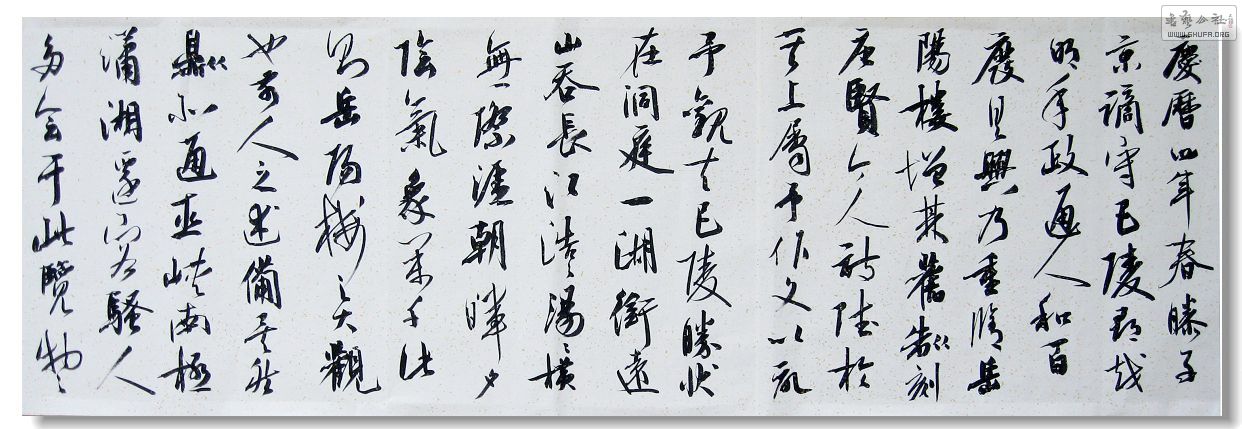 慶曆四年春滕子
京謫守巴陵郡越
明年政通人和百
廢具興乃重脩岳
陽樓增其舊制刻
唐賢今人詩賦於
其上屬予作文以記
予觀夫巴陵勝狀
在洞庭一湖銜遠
山吞長江浩〻湯〻橫
無際涯朝暉夕
陰氣象萬千此
則岳陽樓之大觀
也前人之述備矣然
則北通巫峽南極
瀟湘遷客騷人
多會于此覽物之
书艺公社
WWW.SHUFA.ORG